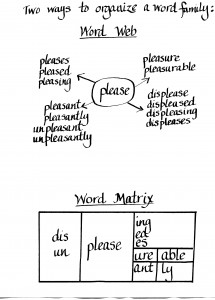 Two ways to organize a word family:
Word Web
pleases
pleased
pleasing
pleasure
pleasurable
please
pleasant
pleasantly
unpleasant
unpleasantly
displease
displeased
displeasing
displeases
Word Matrix
dis
un
please
ing
ed
es
ure
able
ant
ly